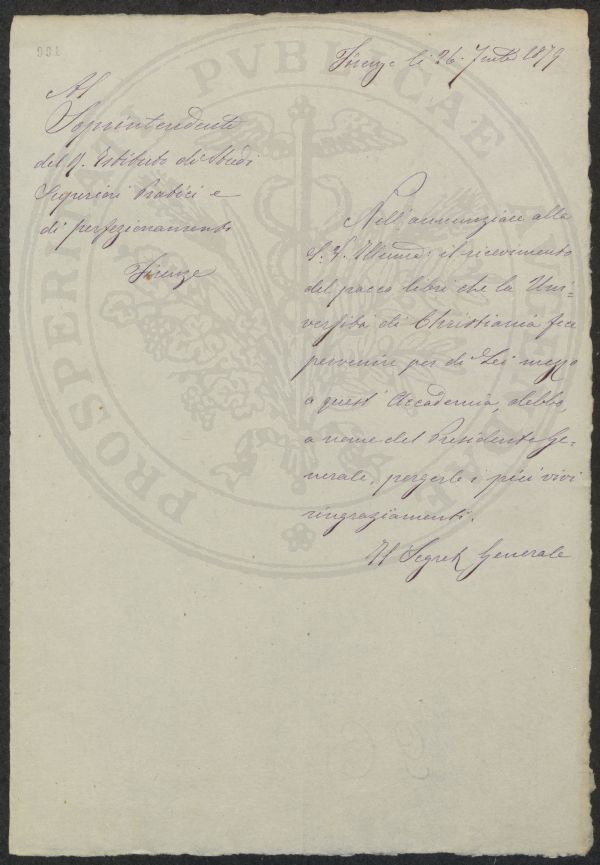 991
Firenze li 26. 1879
Al
Soprintendente
del R. Istituto di Studi
Superiori Pratici e
di perfezionamento
Firenze
Nell'annunziare alla
S. V. Illma: il ricevimento
del pacco libri che la Uni=
versità di Christiania fece
pervenire per di Lei mezzo
a quest' Accademia, debbo,
a nome del Presidente Ge-
nerale, porgerle i più vivi
ringraziamenti.
Il Segret. Generale
PROSPERITATI PVBLICAE